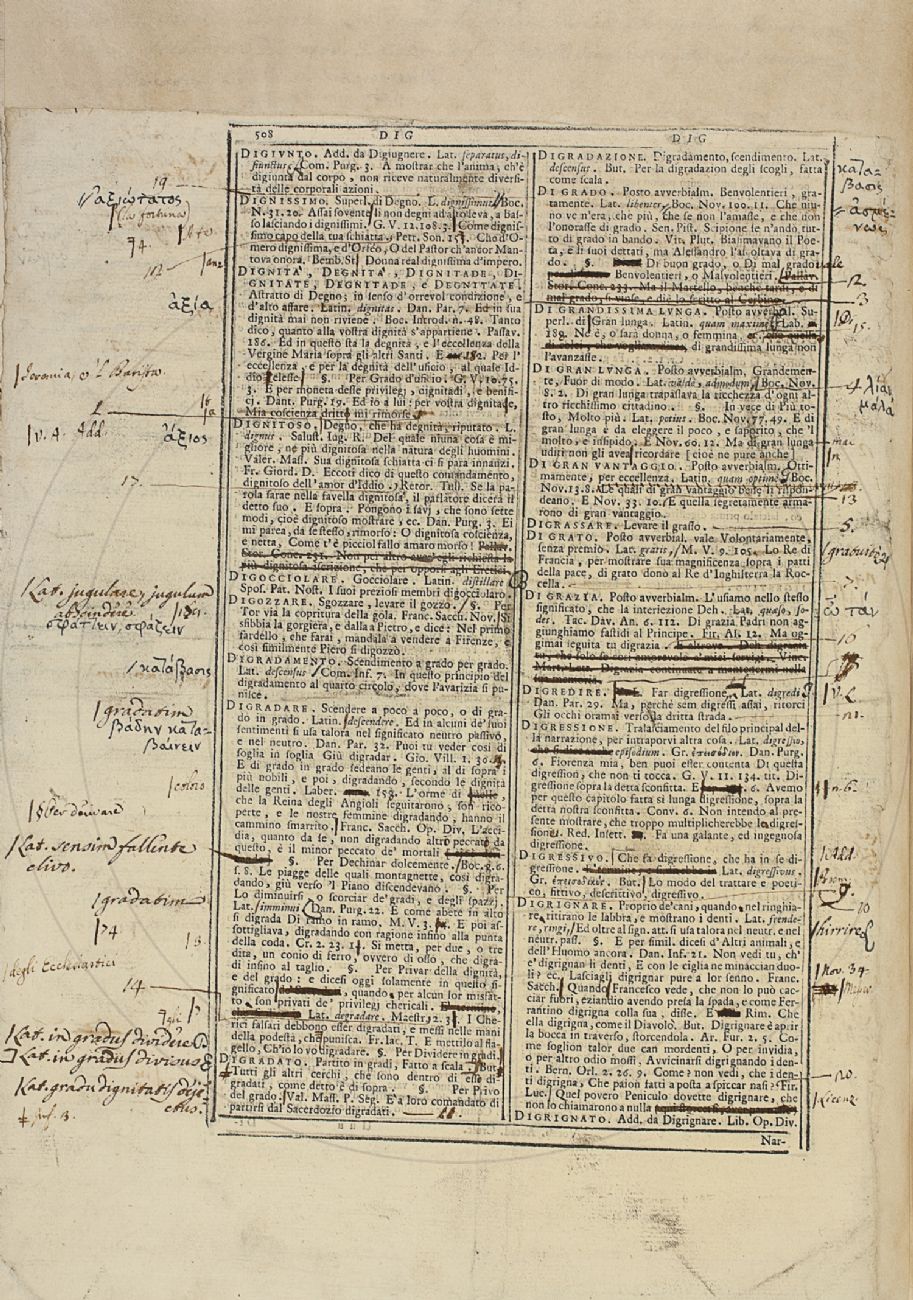 508 DIG
DIGIVNTO. Add. da Digiugnere. Lat. separatus, di-
siunctus. Com. Purg. 3. A mostrar che l'anima, ch'è
digiunta dal corpo, non riceve naturalmente diversi-
tà delle corporali azioni.
DIGNISSIMO. Superl. di Degno. L. dignissimus. Boc.
N. 31. 20. Assai sovente i non degni ad alto leva, a bas-
so lasciando i dignissimi. G. V. 12. 108. 3. Come dignis-
simo capo della tua schiatta. Petr. Son. 15. Ch'd'O-
mero dignissima, e d'Orfeo, O del Pastor ch'ancor Man-
tova onora. Bemb. St. Donna real dignissima d'impero.
DIGNITÀ, DEGNITÀ, DIGNITADE, DI-
GNITATE, DEGNITADE, e DEGNITATE.
Astratto di Degno; in senso d'orrevol condizione, e
d'alto affare. Latin. dignitas. Dan. Par. 7. Ed in sua
dignità mai non riviene. Boc. Introd. n. 48. Tanto
dico, quanto alla vostra dignità s'appartiene. Passav.
186. Ed in questo sta la degnità, e l'eccellenza della
Vergine Maria sopra gli altri Santi. E 182. Per l'
eccellenza, e per la degnità dell'uficio, al quale Id-
dio l'elesse. §. Per Grado d'uficio. G. V. 10. 75.
3. E per moneta desse privilegj, dignitadi, e benifi-
cj. Dant. Purg. 19. Ed io a lui: per vostra dignitate,
Mia coscienza dritto mi rimorse.
DIGNITOSO. Degno, che ha degnità, riputato. L.
dignus. Salust. Iug. R. Del quale niuna cosa è mi-
gliore, nè più dignitosa nella natura degli huomini.
Valer. Mass. Sua dignitosa schiatta ci si para innanzi.
Fr. Giord. D. Eccoti dico di questo comandamento,
dignitoso dell'amor d'Iddio. Retor. Tull. Se la pa-
rola sarae nella favella dignitosa, il parlatore dicerà il
detto suo. E sopra. Pongono i savj, che sono sette
modi, cioè dignitoso mostrare, ec. Dan. Purg. 3. Ei
mi parea, da se stesso, rimorso: O dignitosa coscienza,
e netta, Come t'è picciol fallo amaro morso!
Stor. Conc. 231. Non per altro
più dignitosa iscrizione, che per opporsi agli Eretici.
DIGOCCIOLARE. Gocciolare. Latin. distillare.
Spos. Pat. Nost. I suoi preziosi membri digocciolaro.
DIGOZZARE. Sgozzare, levare il gozzo. §. Per
Tor via la copritura della gola. Franc. Sacch. Nov. Si
sfibbia la gorgiera, e dalla a Pietro, e dice: Nel primo
fardello, che farai, mandala a vendere a Firenze, e
così similmente Piero si digozzò.
DIGRADAMENTO. Scendimento a grado per grado.
Lat. descensus. Com. Inf. 7. In questo principio del
digradamento al quarto circolo, dove l'avarizia si pu-
nisce.
DIGRADARE. Scendere a poco a poco, o di gra-
do in grado. Latin. descendere. Ed in alcuni de'suoi
sentimenti si usa talora nel significato neutro passivo,
e nel neutro. Dan. Par. 32. Puoi tu veder così di
soglia in soglia Giù digradar. Gio. Vill. 1. 30.
E di grado in grado sedeano le genti, al di sopra i
più nobili, e poi, digradando, secondo le dignità
delle genti. Laber. 153. L'orme di
che la Reina degli Angioli seguitarono, son rico-
perte, e le nostre femmine digradando, hanno il
cammino smarrito. Franc. Sacch. Op. Div. L'acci-
dia, quanto da se, non digradando altro peccato da
questo, è il minor peccato de' mortali
§. Per Dechinar dolcemente. Boc. g. 6.
f. 8. Le piagge delle quali montagnette, così digra-
dando, giù verso 'l Piano discendevano. §. Per
Lo diminuirsi, o scorciar de'gradi, e degli spazzj.
Lat. imminui. Dan. Purg. 22. E come abete in alto
si digrada Di ramo in ramo. M. V. 3. E poi as-
sottigliava, digradando con ragione insino alla punta
della coda. Cr. 2. 23. 14. Si metta, per due, o tre
dita, un conio di ferro, ovvero di osso, che digra-
di insino al taglio. §. Per Privar della dignità,
e del grado: e dicesi oggi solamente in questo si-
gnificato, quando per alcun lor misfat-
to, son privati de' privilegj chericali.
Lat. degradare. Maestr. 12. 3. I Che-
rici falsari debbono esser digradati, e messi nelle mani
della podestà, che punisca. Fr. Iac. T. E mettilo al fla-
gello, Ch'io lo vo digradare. §. Per Dividere in gradi.
DIGRADATO. Partito in gradi, Fatto a scala. But.
Tutti gli altri cerchi, che sono dentro di essi di-
gradati, come detto è di sopra. §. Per Privo
del grado. Val. Mass. P. Seg. E a loro comandato di
partirsi dal Sacerdozio digradati.
DIG
DIGRADAZIONE. Digradamento, scendimento. Lat.
descensus. But. Per la digradazion degli scogli, fatta
come scala.
DI GRADO. Posto avverbialm. Benvolentieri, gra-
tamente. Lat. libenter. Boc. Nov. 100. 11. Che niu-
no ve n'era, che più, che se non l'amasse, e che non
l'onorasse di grado. Sen. Pist. Scipione se n'andò tut-
to di grado in bando. Vit. Plut. Biasimavano il Poe-
ta, e li suoi dettati, ma Alessandro l'ascoltava di gra-
do. §. Di buon grado, o Di mal grado vale
Benvolentieri, o Malvolentieri.
Stor. Conc. 233. Ma il Martello, benchè tardi, e di
mal grado, si vinse, e diè lo scritto al
DI GRANDISSIMA LUNGA. Posto avverbial. Su-
perl. di Gran lunga. Latin. quam maxime. Lab.
189. Nè è, o sarà donna, o femmina,
di grandissima lunga non
l'avanzasse.
DI GRAN LUNGA. Posto avverbialm. Grandemen-
te, Fuor di modo. Lat. valdè, admodum. Boc. Nov.
8. 2. Di gran lunga trapassava la ricchezza d'ogni al-
tro ricchissimo cittadino. §. In vece di Più to-
sto, Molto più. Lat. potius. Boc. Nov. 77. 49. E di
gran lunga è da eleggere il poco, e saporito, che 'l
molto, e insipido. E Nov. 60. 12. Ma di gran lunga
uditi non gli avea ricordare [cioè ne pure anche]
DI GRAN VANTAGGIO. Posto avverbialm. Otti-
mamente, per eccellenza. Latin. quam optimè. Boc.
Nov. 13. 8. Le quali di gran vantaggio bene li rispon-
deano. E Nov. 33. 10. E quella segretamente arma-
rono di gran vantaggio.
DIGRASSARE. Levare il grasso.
DI GRATO. Posto avverbial. vale Volontariamente,
senza premio. Lat. gratis. M. V. 9. 105. Lo Re di
Francia, per mostrare sua magnificenza sopra i patti
della pace, di grato donò al Re d'Inghilterra la Roc-
cella.
DI GRAZIA. Posto avverbialm. L'usiamo nello stesso
significato, che la interiezione Deh. Lat. quæso, so-
des. Tac. Dàv. An. 6. 112. Di grazia Padri non ag-
giunghiamo fastidi al Principe. Fir. As. 12. Ma og-
gimai seguita tu digrazia.
DIGREDIRE. Far digressione. Lat. digredi.
Dan. Par. 29. Ma, perchè sem digressi assai, ritorci
Gli occhi oramai verso la dritta strada.
DIGRESSIONE. Tralasciamento del filo principal del-
la narrazione, per intraporvi altra cosa. Lat. digressio,
episodium. Gr. ἐπεισόδιον. Dan. Purg.
6. Fiorenza mia, ben puoi esser contenta Di questa
digression, che non ti tocca. G. V. 11. 134. tit. Di-
gressione sopra la detta sconfitta. E 6. Avemo
per questo capitolo fatta sì lunga digressione, sopra la
detta nostra sconfitta. Conv. 6. Non intendo al pre-
sente mostrare, che troppo multiplicherebbe la digres-
sione. Red. Insett. Fa una galante, ed ingegnosa
digressione.
DIGRESSIVO. Che fa digressione, che ha in se di-
gressione. Lat. digressivus.
Gr. But. Lo modo del trattare è poeti-
co, fittivo, descrittivo, digressivo.
DIGRIGNARE. Proprio de'cani, quando nel ringhia-
re, ritirano le labbra, e mostrano i denti. Lat. frende-
re, ringi. Ed oltre al sign. att. si usa talora nel neutr. e nel
neutr. pass. §. E per simil. dicesi d'Altri animali, e
dell'Huomo ancora. Dan. Inf. 21. Non vedi tu, ch'
e'digrignan li denti, E con le ciglia ne minaccian duo-
li? ec. Lasciagli digrignar pure a lor senno. Franc.
Sacch. Quando Francesco vede, che non lo può cac-
ciar fuori, eziandio avendo presa la spada, e come Fer-
rantino digrigna colla sua, disse. E Rim. Che
ella digrigna, come il Diavolo. But. Digrignare è aprir
la bocca in traverso, storcendola. Ar. Fur. 2. 5. Co-
me soglion talor due can mordenti, O per invidia,
o per altro odio mossi, Avvicinarsi digrignando i den-
ti. Bern. Orl. 2. 26. 9. Come? non vedi, che i den-
ti digrigna, Che paion fatti a posta a spiccar nasi? Fir.
Luc. Quel povero Peniculo dovette digrignare, che
non lo chiamarono a nulla
DIGRIGNATO. Add. da Digrignare. Lib. Op. Div.
Nar-
19
ἀξιώτατος
ἀξία
Jeremia, o l Barista
v. A. Add.
ἄξιος
17
Lat. jugulare, jugulum
σφάττειν, σφάζειν
κατάβασις
gradatim
βάδην κατα-
βαίνειν
coloro
§ Per derivare
Lat. sensim fallente
clivo.
gradatim
74
degli Ecclesiastici
14
Lat. in gradus dividere
Lat. in gradus divisus
Lat. gradu dignitatis deje-
ctus.
κατά-
βασις
12
3
15.
λίαν
μάλα
13
5.
gratuitò
ὦ τάν
10
n. 6.
Add.
9.
10
hirrire
Nov. 34.
20.